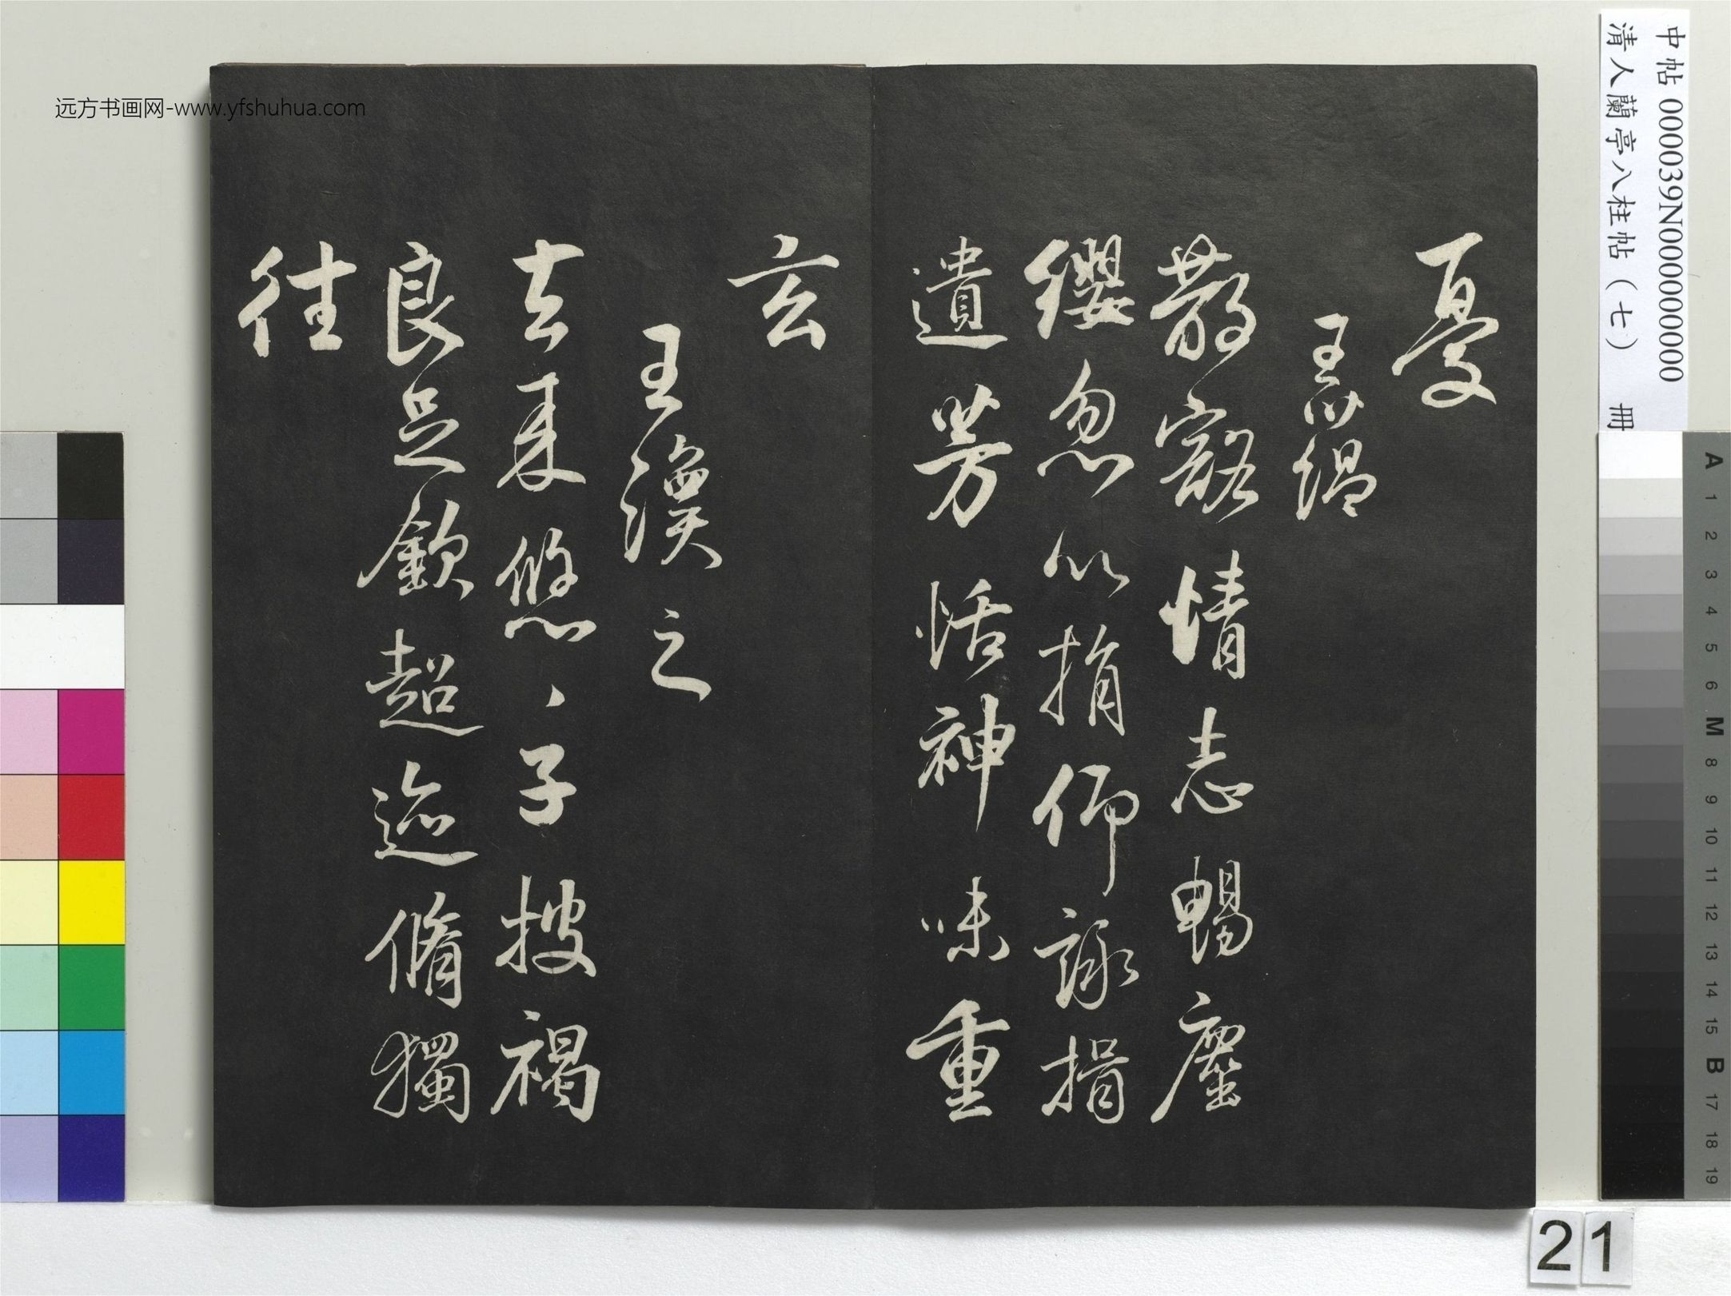 远方书画网-www.yfshuhua.com
中帖 000039N000000000
清人蘭亭八柱帖（七） 冊
憂
王蘊
散豁情志暢塵
纓忽以捐仰詠揖
遺芳恬神味重
玄
王渙之
去來悠、子披褐
良足欽超迹脩獨
往
A 1 2 3 4 5 6 M 8 9 10 11 12 13 14 15 B 17 18 19
21